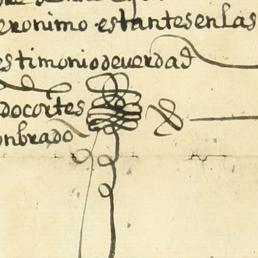 eronimo estantes en las
estimonio de verdad
do cortes
onbrado